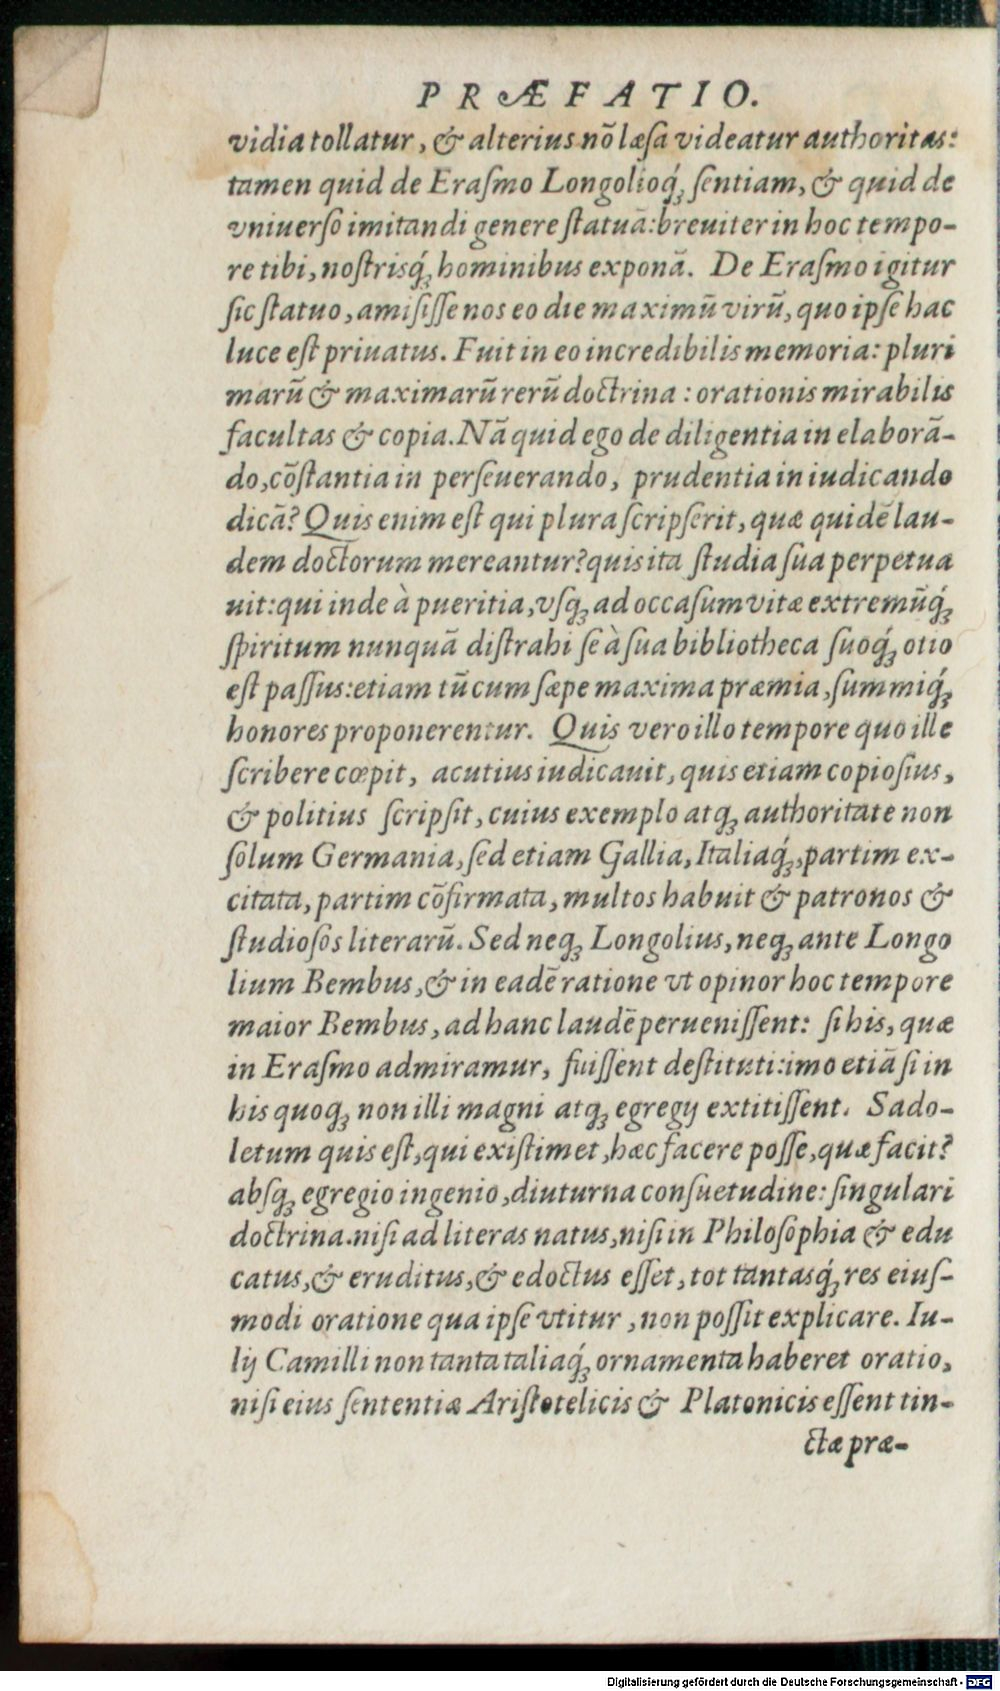 PRÆFATIO.
vidia tollatur, & alterius nõ læſa videatur authoritas:
tamen quid de Eraſmo Longolioq́; ſentiam, & quid de
vniuerſo imitandi genere ſtatuã: breuiter in hoc tempo-
re tibi, noſtrisq́; hominibus exponã. De Eraſmo igitur
ſic ſtatuo, amiſiſſe nos eo die maximũ virũ, quo ipſe hac
luce eſt priuatus. Fuit in eo incredibilis memoria: pluri
marũ & maximarũ rerũ doctrina: orationis mirabilis
facultas & copia. Nã quid ego de diligentia in elaborã-
do, cõſtantia in perſeuerando, prudentia in iudicando
dicã? Quis enim eſt qui plura ſcripſerit, quæ quidẽ lau-
dem doctorum mereantur? quis ita ſtudia ſua perpetua
uit: qui inde à pueritia, vſq; ad occaſum vitæ extremũq́;
ſpiritum nunquã diſtrahi ſe à ſua bibliotheca ſuoq́; otio
eſt paſſus: etiam tũ cum ſæpe maxima præmia, ſummiq́;
honores proponerentur. Quis vero illo tempore quo ille
ſcribere cœpit, acutius iudicauit, quis etiam copioſius,
& politius ſcripſit, cuius exemplo atq; authoritate non
ſolum Germania, ſed etiam Gallia, Italiaq́;, partim ex-
citata, partim cõfirmata, multos habuit & patronos &
ſtudioſos literarũ. Sed neq; Longolius, neq; ante Longo
lium Bembus, & in eadẽ ratione vt opinor hoc tempore
maior Bembus, ad hanc laudẽ perueniſſent: ſi his, quæ
in Eraſmo admiramur, fuiſſent deſtituti: imo etiã ſi in
his quoq; non illi magni atq; egregij extitiſſent. Sado-
letum quis eſt, qui exiſtimet, hæc facere poſſe, quæ facit?
abſq; egregio ingenio, diuturna conſuetudine: ſingulari
doctrina. niſi ad literas natus, niſi in Philoſophia & edu
catus, & eruditus, & edoctus eſſet, tot tantasq́; res eiuſ-
modi oratione qua ipſe vtitur, non poſſit explicare. Iu-
lij Camilli non tanta taliaq́; ornamenta haberet oratio,
niſi eius ſententiæ Ariſtotelicis & Platonicis eſſent tin-
ctæ præ-
Digitalisierung gefördert durch die Deutsche Forschungsgemeinschaft - DFG